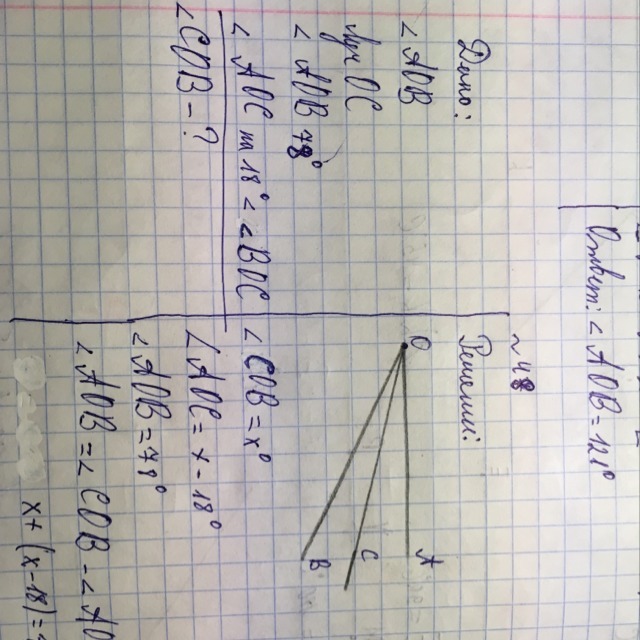 Ответ: ∠ AOB = 121°
~48
Дано:
∠ AOB
Луч OC
∠ AOB 78°
∠ AOC на 18° < ∠BOC
∠COB - ?
Решение:
O
A
C
B
∠ COB = x°
∠ AOC = x - 18°
∠AOB = 78°
∠AOB = ∠ COB - ∠AO
x + (x-18) =